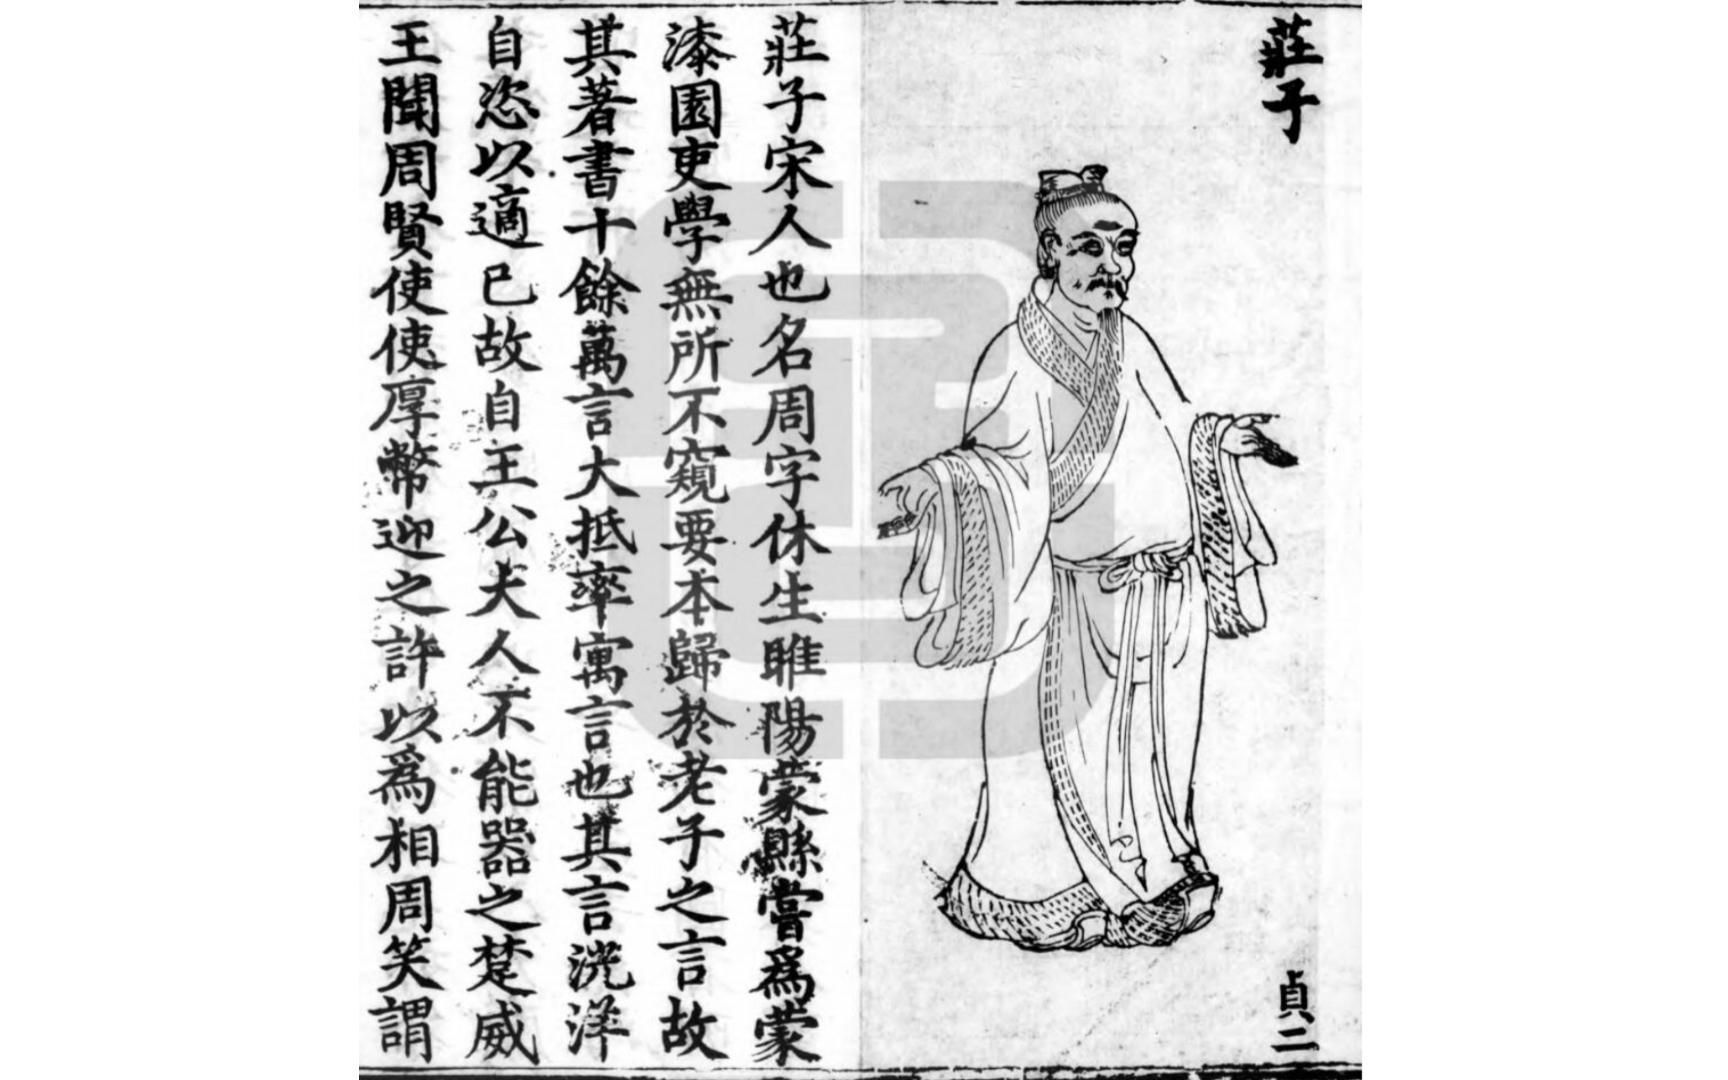 莊子
貞二
莊子宋人也名周字休生睢陽蒙縣嘗爲蒙
漆園吏學無所不窺要本歸於老子之言故
其著書十餘萬言大抵率寓言也其言洸洋
自恣以適已故自王公大人不能器之楚威
王聞周賢使使厚幣迎之許以爲相周笑謂